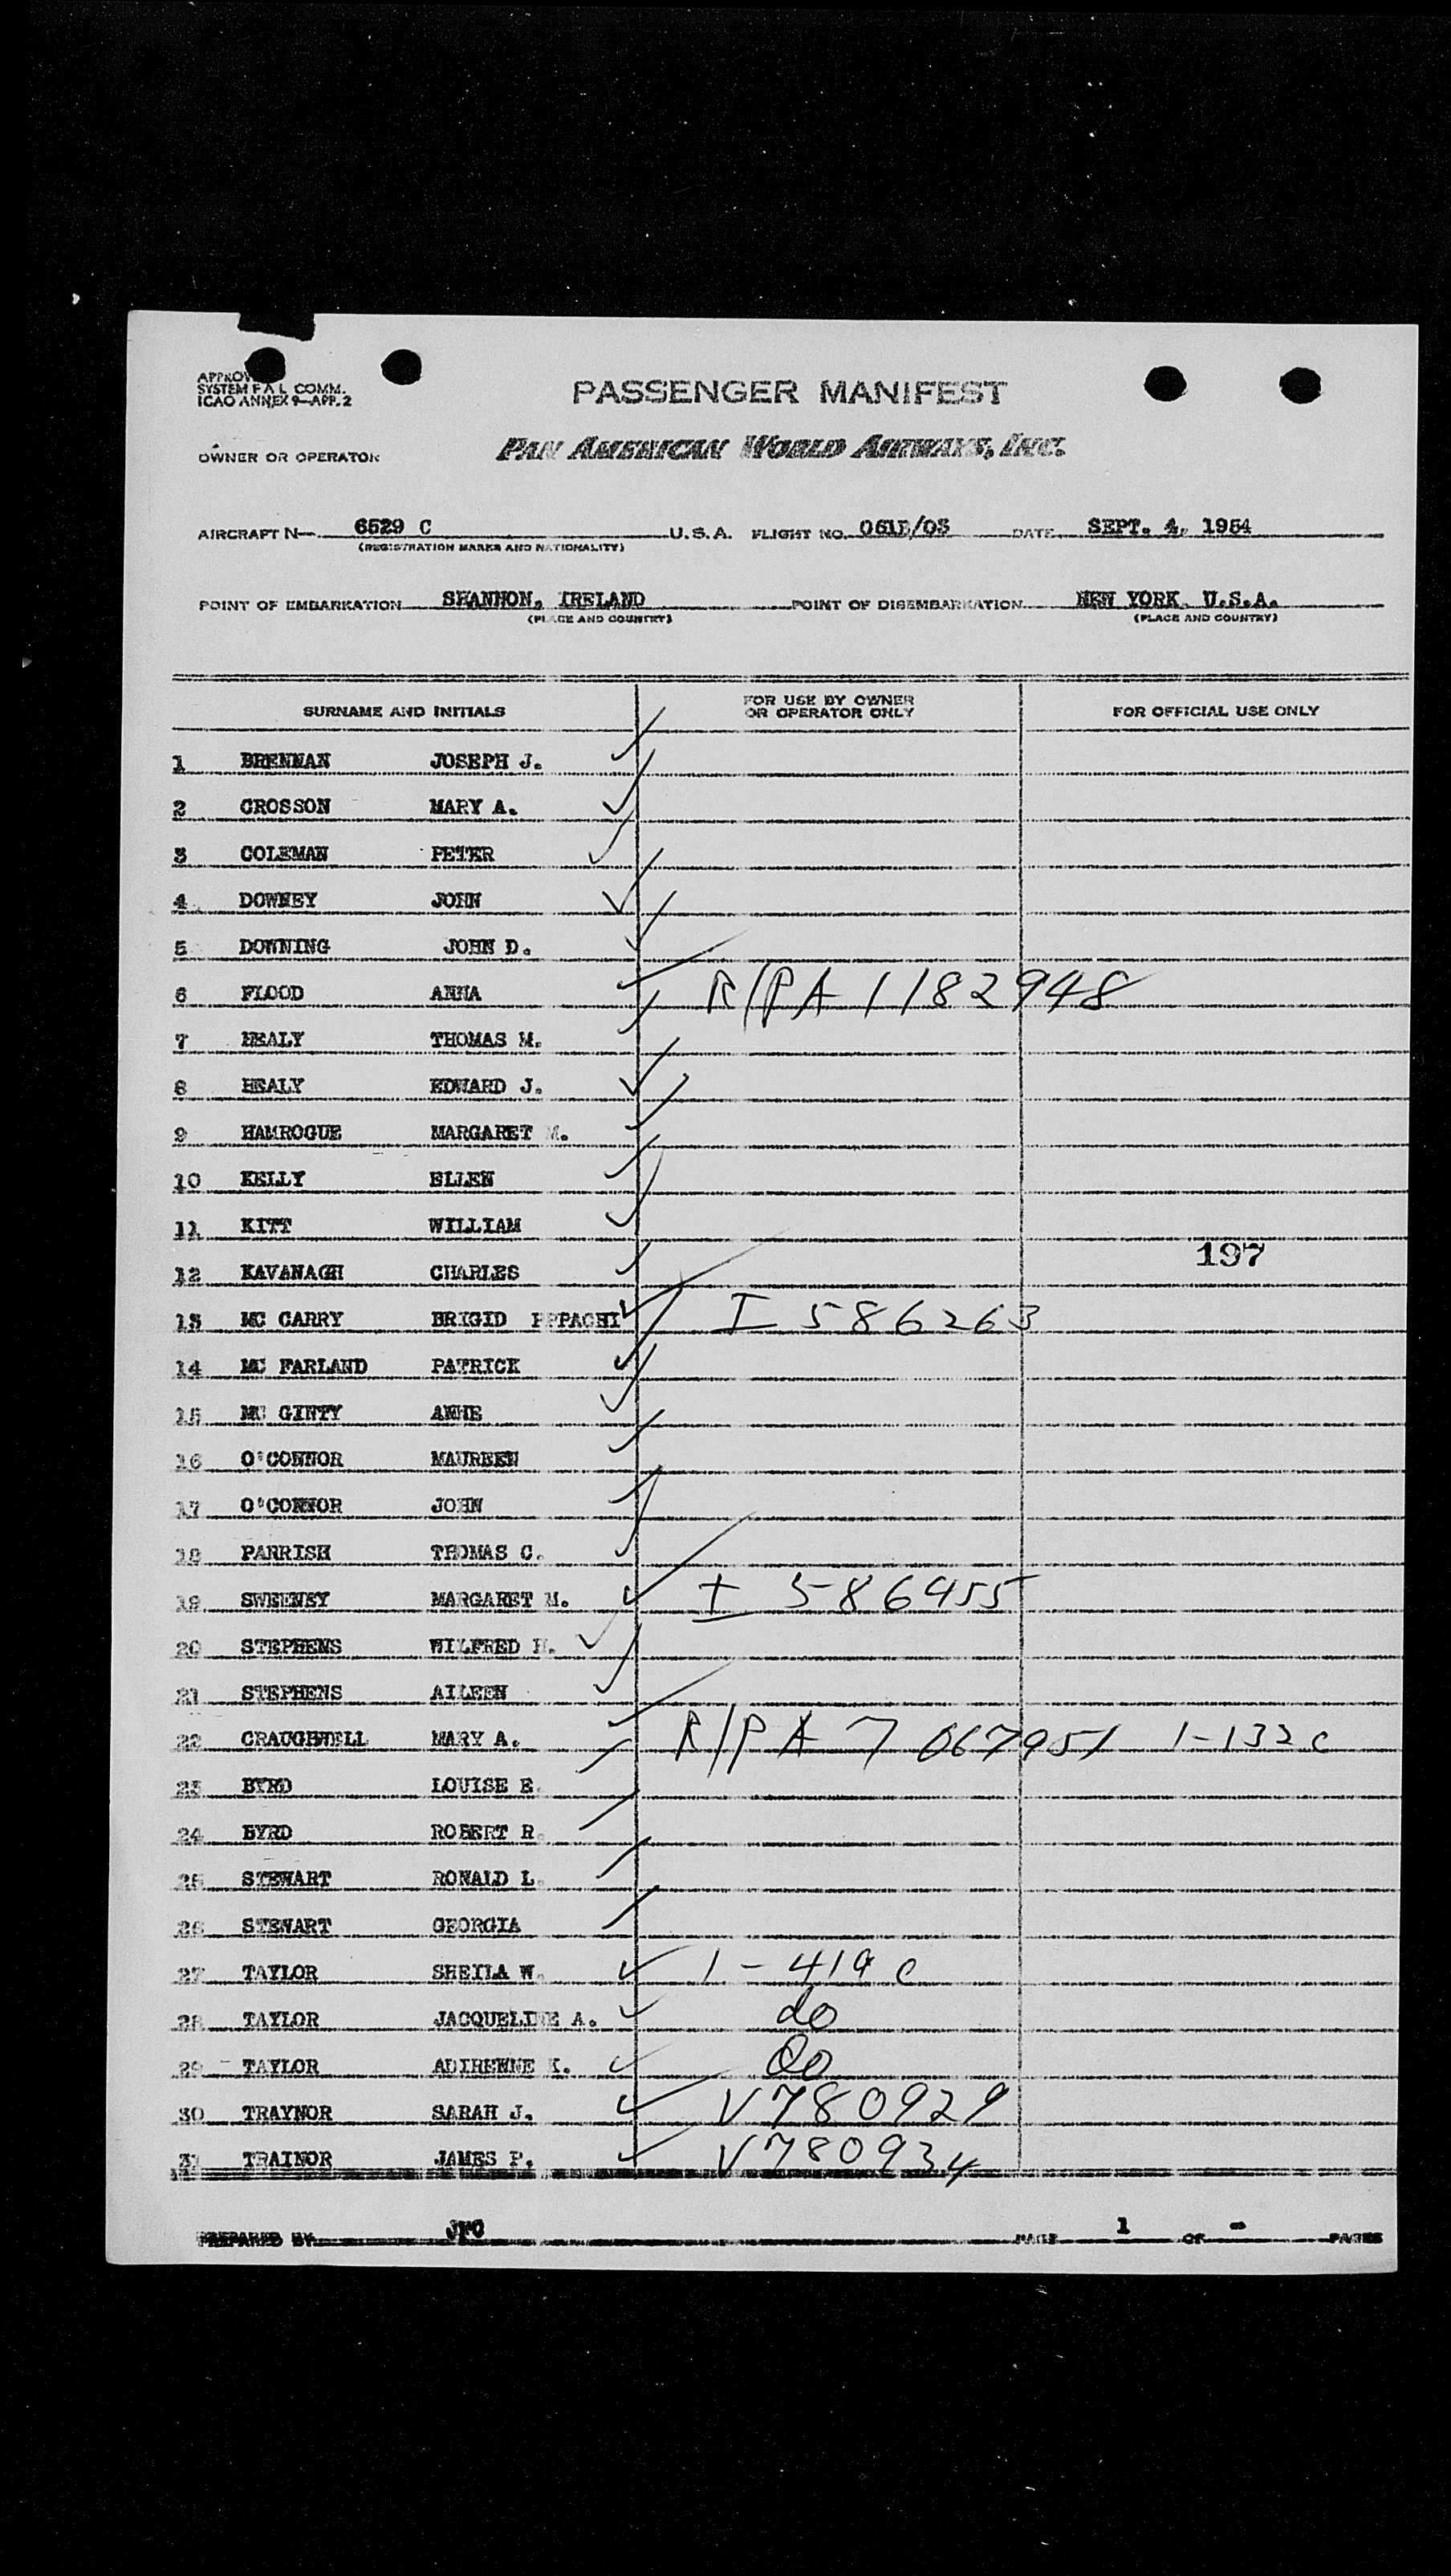 SYSTEM F.A.L. COMM.
ICAO ANNEX 9-APP. 2
PASSENGER MANIFEST
OWNER OR OPERATOR PAN AMERICAN WORLD AIRWAYS, INC.
AIRCRAFT N— 6529 C U.S.A. FLIGHT NO. DATE SEPT. 4, 1954
(REGISTRATION MARKS AND NATIONALITY)
POINT OF EMBARKATION SHANNON, IRELAND POINT OF DISEMBARKATION NEW YORK U.S.A.
(PLACE AND COUNTRY) (PLACE AND COUNTRY)
SURNAME AND INITIALS FOR USE BY OWNER OR OPERATOR ONLY FOR OFFICIAL USE ONLY
1 BRENNAN JOSEPH J. ✓
2 CROSSON MARY A. ✓
3 COLEMAN PETER ✓
4 DOWNEY JOHN ✓
5 DOWNING JOHN D. ✓
6 FLOOD ANNA ✓ R/P A 1182948
7 HEALY THOMAS M. ✓
8 HEALY EDWARD J. ✓
9 HAMROGUE MARGARET M. ✓
10 KELLY ELLEN ✓
11 KITT WILLIAM ✓
197
12 KAVANAGH CHARLES ✓
13 MC GARRY BRIGID ✓ I 586263
14 MC FARLAND PATRICK ✓
15 MC GINTY ANNE ✓
16 O'CONNOR MAUREEN ✓
17 O'CONNOR JOHN ✓
18 PARRISH THOMAS C. ✓
19 SWEENEY MARGARET M. ✓ I 586455
20 STEPHENS WILFRED H. ✓
21 STEPHENS AILEEN ✓
22 CRAUGHWELL MARY A. ✓ R/P A 7 067951 1-132c
23 BYRD LOUISE E. ✓
24 BYRD ROBERT R. ✓
25 STEWART RONALD L. ✓
26 STEWART GEORGIA ✓
27 TAYLOR SHEILA W. ✓ 1-419 c
28 TAYLOR JACQUELINE A. ✓ do
29 TAYLOR ADIRENNE K. ✓ Do
30 TRAYNOR SARAH J. ✓ V780929
31 TRAINOR JAMES P. ✓ V780934
PREPARED BY PAGE 1 OF - PAGES